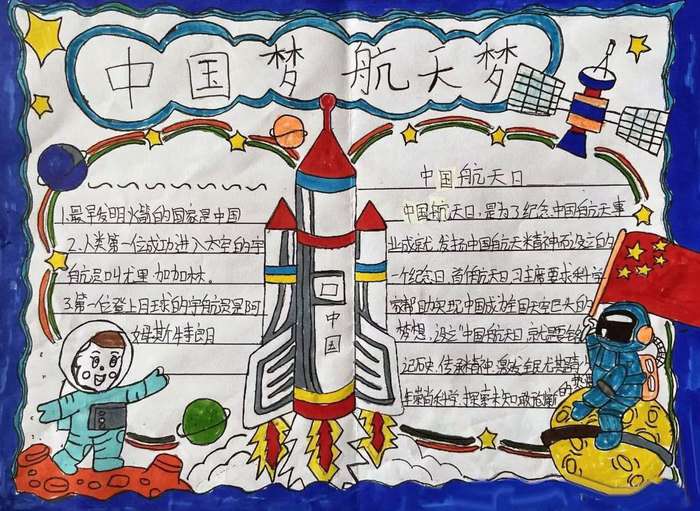 中国梦 航天梦
1.最早发明火箭的国家是中国
2.人类第一位成功进入太空的宇
航员叫尤里·加加林.
3.第一位登上月球的宇航员是阿
姆斯特朗
中国
中国航天日
中国航天日,是为了纪念中国航天事
业成就,发扬中国航天精神而设立的
一个纪念日,首个航天日习主席要求科学
家帮助实现中国成为全国太空巨大的
梦想,设立"中国航天日,就是要铭
记历史,传承精神,激发全民尤其是
崇尚科学,探索未知敢